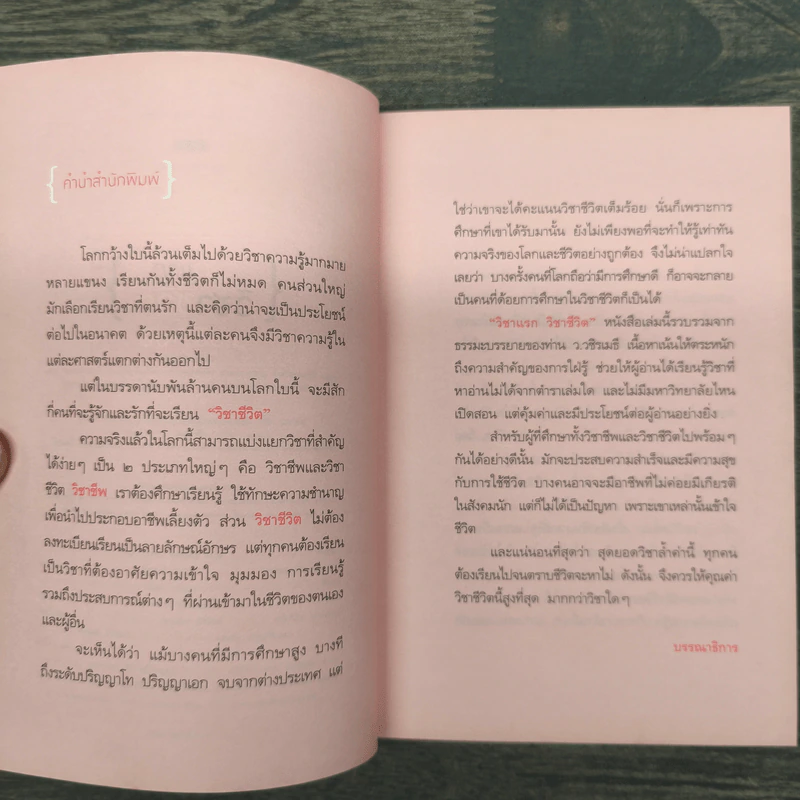 {คำนำสำนักพิมพ์}
โลกกว้างใบนี้ล้วนเต็มไปด้วยวิชาความรู้มากมาย
หลายแขนง เรียนกันทั้งชีวิตก็ไม่หมด คนส่วนใหญ่
มักเลือกเรียนวิชาที่ตนรัก และคิดว่าน่าจะเป็นประโยชน์
ต่อไปในอนาคต ด้วยเหตุนี้แต่ละคนจึงมีวิชาความรู้ใน
แต่ละศาสตร์แตกต่างกันออกไป
แต่ในบรรดานับพันล้านคนบนโลกใบนี้ จะมีสัก
กี่คนที่จะรู้จักและรักที่จะเรียน "วิชาชีวิต"
ความจริงแล้วในโลกนี้สามารถแบ่งแยกวิชาที่สำคัญ
ได้ง่ายๆ เป็น ๒ ประเภทใหญ่ๆ คือ วิชาชีพและวิชา
ชีวิต วิชาชีพ เราต้องศึกษาเรียนรู้ ใช้ทักษะความชำนาญ
เพื่อนำไปประกอบอาชีพเลี้ยงตัว ส่วน วิชาชีวิต ไม่ต้อง
ลงทะเบียนเรียนเป็นลายลักษณ์อักษร แต่ทุกคนต้องเรียน
เป็นวิชาที่ต้องอาศัยความเข้าใจ มุมมอง การเรียนรู้
รวมถึงประสบการณ์ต่างๆ ที่ผ่านเข้ามาในชีวิตของตนเอง
และผู้อื่น
จะเห็นได้ว่า แม้บางคนที่มีการศึกษาสูง บางที
ถึงระดับปริญญาโท ปริญญาเอก จบจากต่างประเทศ แต่
ใช่ว่าเขาจะได้คะแนนวิชาชีวิตเต็มร้อย นั่นก็เพราะการ
ศึกษาที่เขาได้รับมานั้น ยังไม่เพียงพอที่จะทำให้รู้เท่าทัน
ความจริงของโลกและชีวิตอย่างถูกต้อง จึงไม่น่าแปลกใจ
เลยว่า บางครั้งคนที่โลกถือว่ามีการศึกษาดี ก็อาจจะกลาย
เป็นคนที่ด้อยการศึกษาในวิชาชีวิตก็เป็นได้
"วิชาแรก วิชาชีวิต" หนังสือเล่มนี้รวบรวมจาก
ธรรมะบรรยายของท่าน ว.วชิรเมธี เนื้อหาเน้นให้ตระหนัก
ถึงความสำคัญของการใฝ่รู้ ช่วยให้ผู้อ่านได้เรียนรู้วิชาที่
หาอ่านไม่ได้จากตำราเล่มใด และไม่มีมหาวิทยาลัยไหน
เปิดสอน แต่คุ้มค่าและมีประโยชน์ต่อผู้อ่านอย่างยิ่ง
สำหรับผู้ที่ศึกษาทั้งวิชาชีพและวิชาชีวิตไปพร้อมๆ
กันได้อย่างดีนั้น มักจะประสบความสำเร็จและมีความสุข
กับการใช้ชีวิต บางคนอาจจะมีอาชีพที่ไม่ค่อยมีเกียรติ
ในสังคมนัก แต่ก็ไม่ได้เป็นปัญหา เพราะเขาเหล่านั้นเข้าใจ
ชีวิต
และแน่นอนที่สุดว่า สุดยอดวิชาล้ำค่านี้ ทุกคน
ต้องเรียนไปจนตราบชีวิตจะหาไม่ ดังนั้น จึงควรให้คุณค่า
วิชาชีวิตนี้สูงที่สุด มากกว่าวิชาใดๆ
บรรณาธิการ